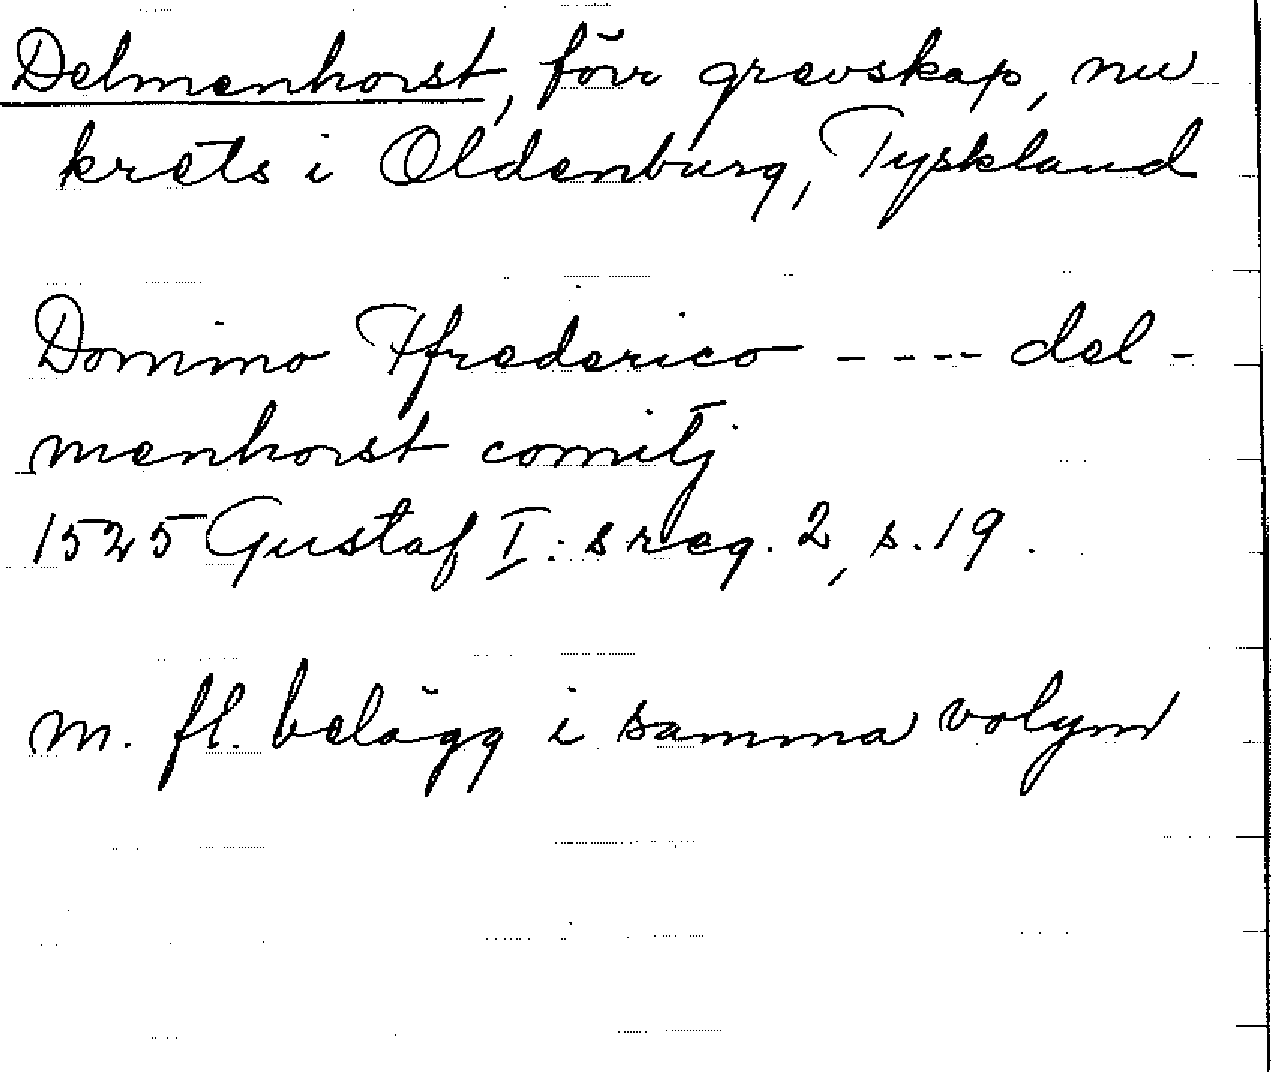 Delmenhorst, förr grevskap, nu
krets i Oldenburg, Tyskland
Domino Ffrederico ---- del-
menhorst comitj
1525 Gustaf I:s reg. 2, s. 19.
m. fl. belägg i samma volym